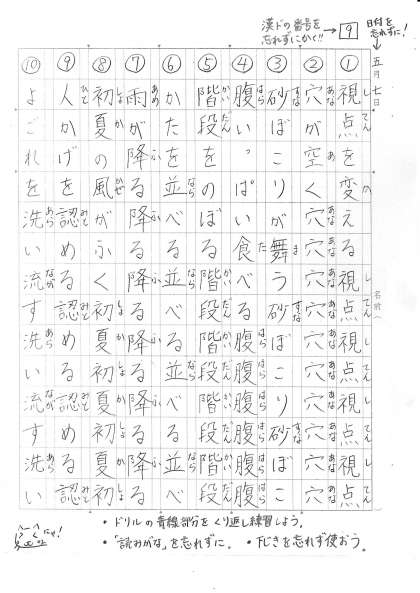 漢ドの番号を
忘れずにかく!!
→ 9
日付を
忘れずに!
五月七日
名前
① 視点を変える視点視点視点視点
② 穴が空く穴穴穴穴穴穴穴穴穴穴
③ 砂ぼこりが舞う砂ぼこり砂ぼこ
④ 腹いっぱい食べる腹腹腹腹腹腹
⑤ 階段をのぼる階段階段階段階段
⑥ かたを並べる並べる並べる並べ
⑦ 雨が降る降る降る降る降る降る
⑧ 初夏の風がふく初夏初夏初夏初
⑨ 人かげを認める認める認める認
⑩ よごれを洗い流す洗い流す洗い
・ドリルの青線部分をくり返し練習しよう。
・「読みがな」を忘れずに。 ・下じきを忘れず使おう